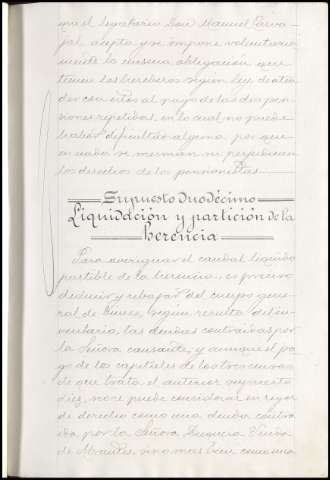 que el legatario Don Manuel Carva-
jal acepta y se impone voluntaria-
mente la misma obligación que
tienen los herederos según ley de aten-
der con éstos al pago de las dos pen-
siones repetidas, en lo cual no puede
haber dificultad alguna, por que
en nada se merman ni perjudican
los derechos de los pensionistas.
Supuesto duodécimo
Liquidación y partición de la
herencia
Para averiguar el caudal líquido
partible de la herencia, es preciso
deducir y rebajar del cuerpo gene-
ral de bienes, según resulta del in-
ventario, las deudas contraidas por
la Señora causante; y aunque el pa-
go de los capitales de los tres censos
de que trata el anterior supuesto
diez, no se puede considerar en rigor
de derecho como una deuda contra-
ida por la Señora Viuda
de Abrantes, sino mas bien como una